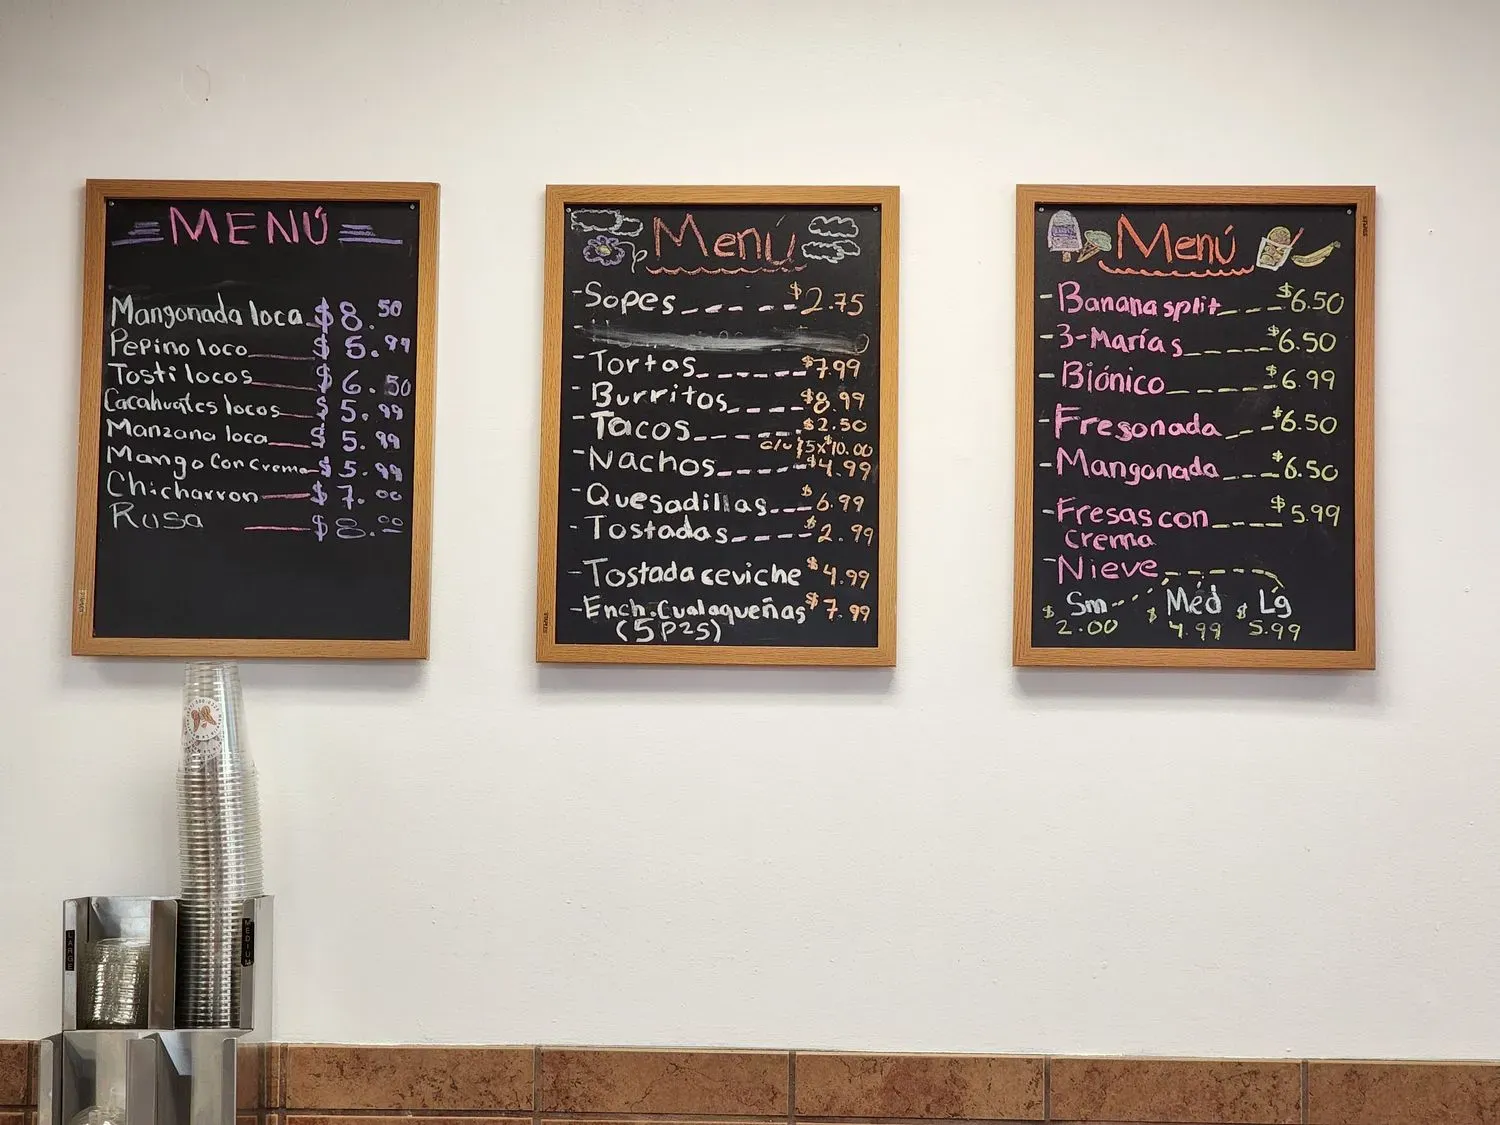 MENÚ
Mangonada loca $8.50
Pepino loco $5.99
Tostilocos $6.50
Cacahuates locos $5.99
Manzana loca $5.99
Mango Con Crema $5.99
Chicharron $7.00
Rusa $8.00
Menú
-Sopes $2.75
-Tortas $7.99
-Burritos $8.99
-Tacos $2.50
c/u 5x$10.00
-Nachos $4.99
-Quesadillas $6.99
-Tostadas $2.99
-Tostada ceviche $4.99
-Ench. Cualaqueñas $7.99
(5 Pzs)
Menú
-Banana split $6.50
-3-Marías $6.50
-Biónico $6.99
-Fresonada $6.50
-Mangonada $6.50
-Fresas con $5.99
crema
-Nieve
Sm Méd Lg
$2.00 $4.99 $5.99
LARGE
MEDIUM